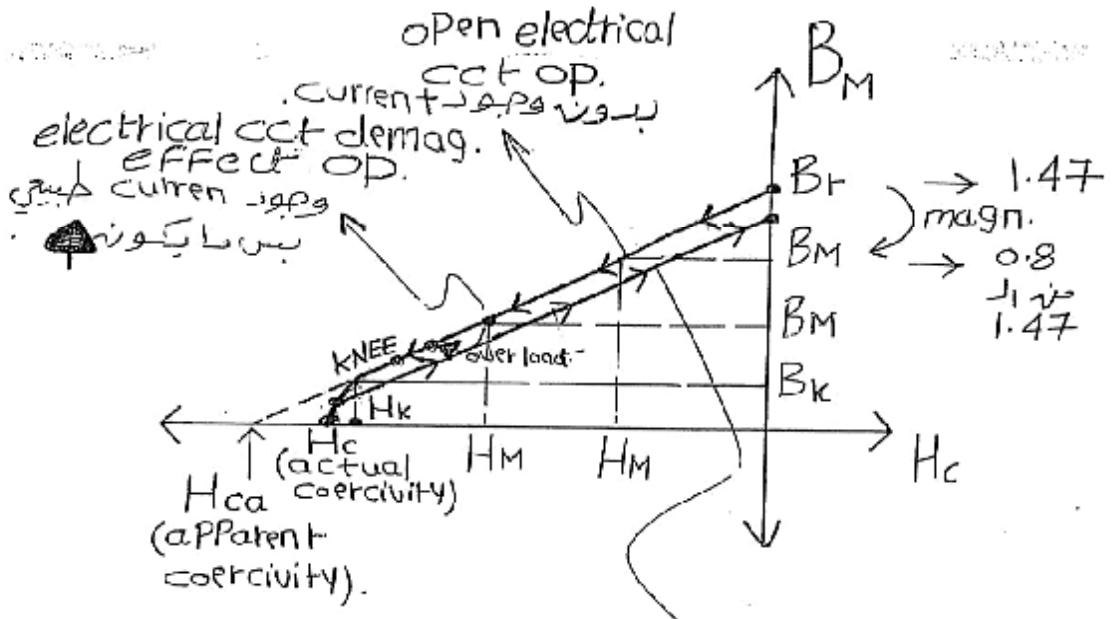 open electrical
cct op.
بدون وجود current.
electrical cct demag.
effect op.
وجود curren طبيعي
بس ما يكون
.
BM
Br → 1.47
magn.
BM → 0.8
من ال
1.47
BM
KNEE
over load.
Bk
Hk
Hc
(actual
coercivity)
HM
HM
Hc
Hca
(apparent
coercivity).